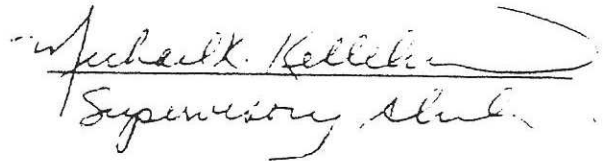 Michael K. Kelleher
Supervisory Clerk